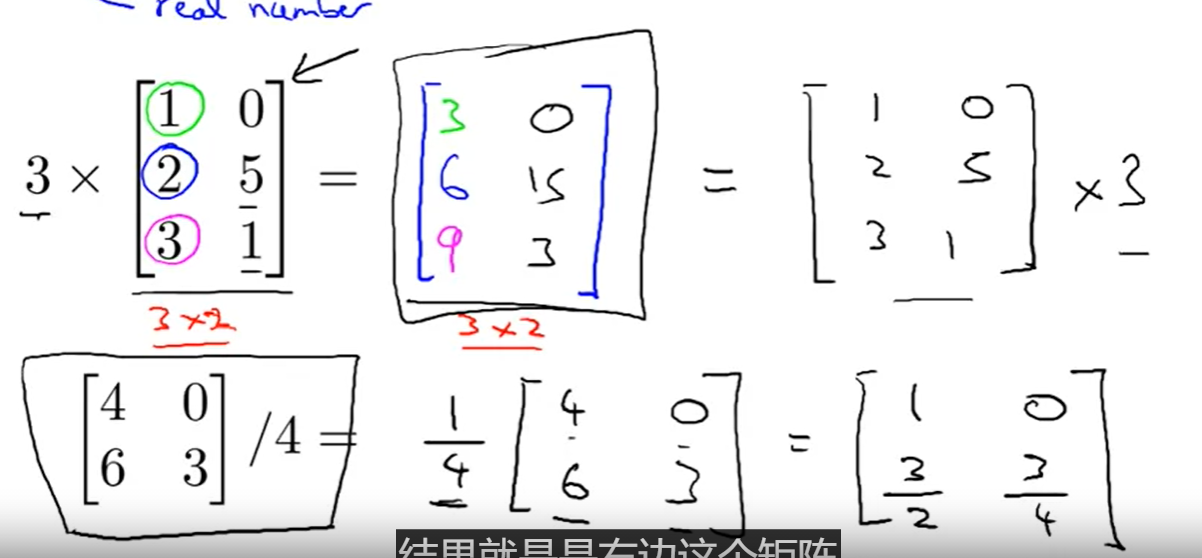 real number
3 × [1 0; 2 5; 3 1] = [3 0; 6 15; 9 3] = [1 0; 2 5; 3 1] × 3
3 × 2 3 × 2
[4 0; 6 3] /4 = 1/4 [4 0; 6 3] = [1 0; 3/2 3/4]
结果就是是右边这个矩阵